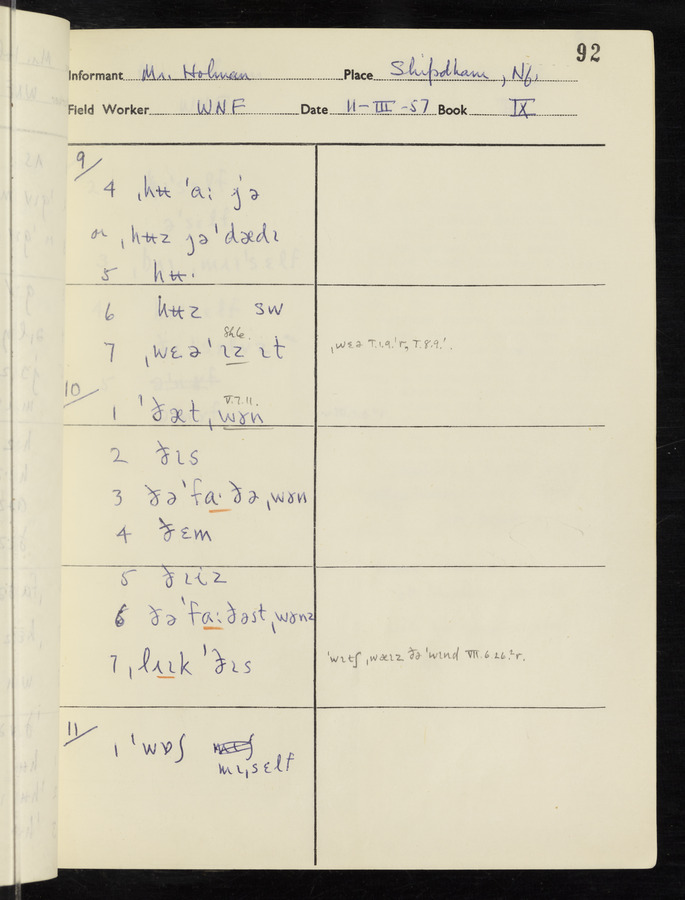 92
Informant Mr. Holman Place Shipdham, Nf.
Field Worker WNF Date 11-III-57 Book IX
9/
4 ˌhʉ ˈɑː jə
or ˌhʉz jəˈdædɪ
5 hʉ·
6 hʉz sw
7 ˌwɛəˈɪz ɪt
ˌwɛə
10/
1 ˈðæt ˌwən
V.7.11.
2 ðɪs
3 ðəˈfɑ·ðə ˌwən
4 ðɛm
5 ðɪiz
6 ðəˈfɑːðəst ˌwənz
7 ˌlɪk ˈðɪs
ˈwɪtʃ ˌwæɪz ðə ˈwɪnd VII.6.26.²r.
11/
1 ˈwɒʃ mɪˌsɛlf